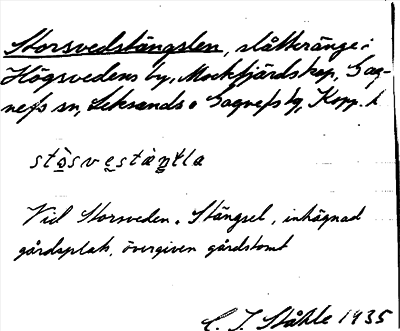 Storsvedstängslen, slåtteränge i
Högsvedens by, Mockfjärds kap, Gag-
nefs sn, Leksands o Gagnefs tg, Kopp. l.
stòsvestàṇtla
Vid Storsveden. Stängsel, inhägnad
gårdsplats, övergiven gårdstomt
C. I. Ståhle 1935